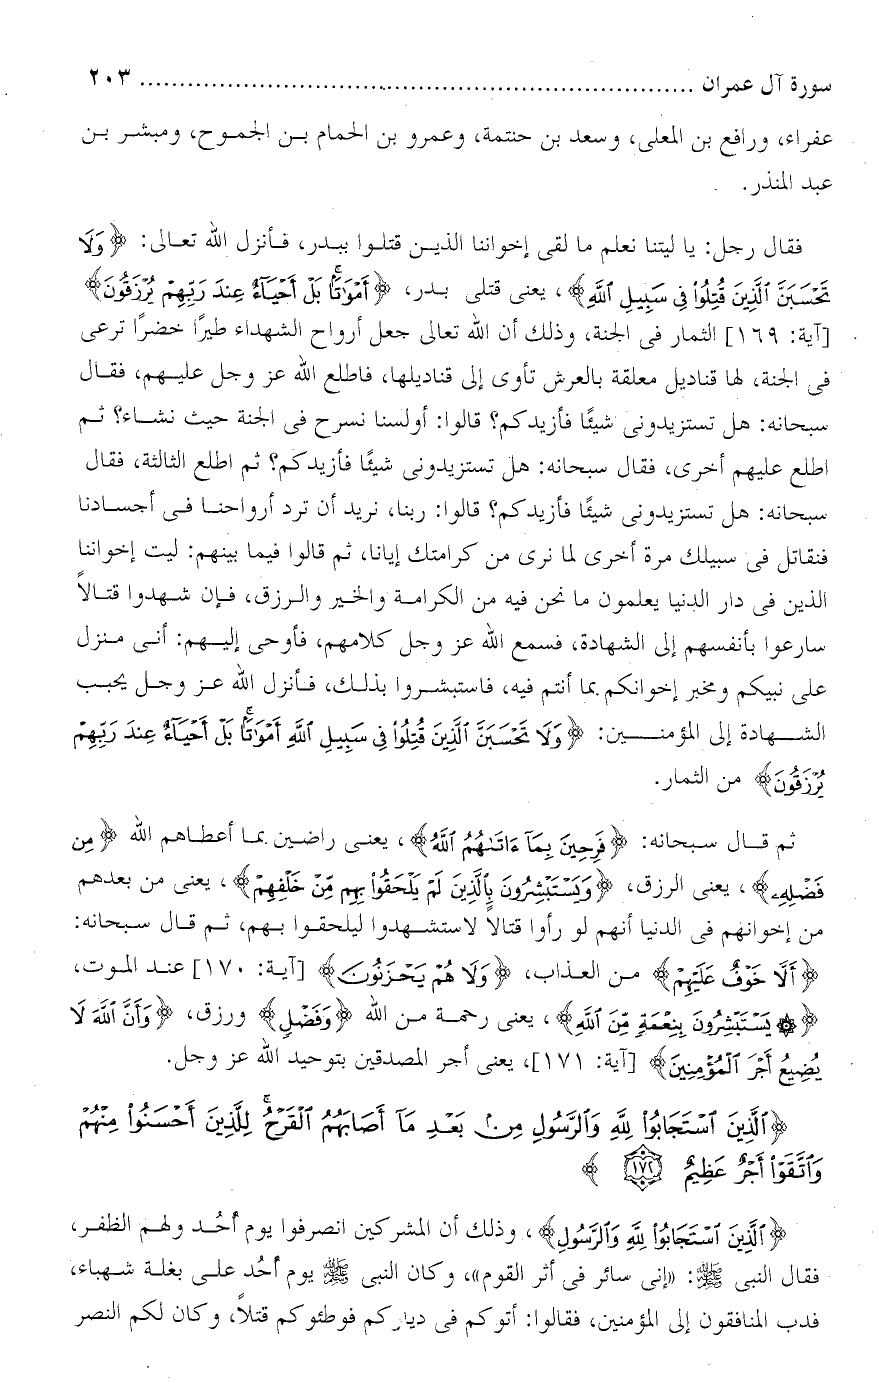 سورة آل عمران ..................................................................... ٢٠٣
عفراء، ورافع بن المعلى، وسعد بن حنتمة، وعمرو بن الحمام بن الجموح، ومبشر بن
عبد المنذر.
فقال رجل: يا ليتنا نعلم ما لقى إخواننا الذين قتلوا ببدر، فأنزل الله تعالى: ﴿وَلَا
تَحْسَبَنَّ ٱلَّذِينَ قُتِلُوا۟ فِى سَبِيلِ ٱللَّهِ﴾، يعنى قتلى بدر، ﴿أَمْوَٰتًۢا بَلْ أَحْيَآءٌ عِندَ رَبِّهِمْ يُرْزَقُونَ﴾
[آية: ١٦٩] الثمار فى الجنة، وذلك أن الله تعالى جعل أرواح الشهداء طيرًا خضرًا ترعى
فى الجنة، لها قناديل معلقة بالعرش تأوى إلى قناديلها، فاطلع الله عز وجل عليهم، فقال
سبحانه: هل تستزيدونى شيئًا فأزيدكم؟ قالوا: أولسنا نسرح فى الجنة حيث نشاء؟ ثم
اطلع عليهم أخرى، فقال سبحانه: هل تستزيدونى شيئًا فأزيدكم؟ ثم اطلع الثالثة، فقال
سبحانه: هل تستزيدونى شيئًا فأزيدكم؟ قالوا: ربنا، نريد أن ترد أرواحنا فى أجسادنا
فنقاتل فى سبيلك مرة أخرى لما نرى من كرامتك إيانا، ثم قالوا فيما بينهم: ليت إخواننا
الذين فى دار الدنيا يعلمون ما نحن فيه من الكرامة والخير والرزق، فإن شهدوا قتالاً
سارعوا بأنفسهم إلى الشهادة، فسمع الله عز وجل كلامهم، فأوحى إليهم: أنى منزل
على نبيكم ومخبر إخوانكم بما أنتم فيه، فاستبشروا بذلك، فأنزل الله عز وجل يحبب
الشهادة إلى المؤمنين: ﴿وَلَا تَحْسَبَنَّ ٱلَّذِينَ قُتِلُوا۟ فِى سَبِيلِ ٱللَّهِ أَمْوَٰتًۢا بَلْ أَحْيَآءٌ عِندَ رَبِّهِمْ
يُرْزَقُونَ﴾ من الثمار.
ثم قال سبحانه: ﴿فَرِحِينَ بِمَآ ءَاتَىٰهُمُ ٱللَّهُ﴾، يعنى راضين بما أعطاهم الله ﴿مِن
فَضْلِهِۦ﴾، يعنى الرزق، ﴿وَيَسْتَبْشِرُونَ بِٱلَّذِينَ لَمْ يَلْحَقُوا۟ بِهِم مِّنْ خَلْفِهِمْ﴾، يعنى من بعدهم
من إخوانهم فى الدنيا أنهم لو رأوا قتالاً لاستشهدوا ليلحقوا بهم، ثم قال سبحانه:
﴿أَلَّا خَوْفٌ عَلَيْهِمْ﴾ من العذاب، ﴿وَلَا هُمْ يَحْزَنُونَ﴾ [آية: ١٧٠] عند الموت،
﴿۞ يَسْتَبْشِرُونَ بِنِعْمَةٍ مِّنَ ٱللَّهِ﴾، يعنى رحمة من الله ﴿وَفَضْلٍ﴾ ورزق، ﴿وَأَنَّ ٱللَّهَ لَا
يُضِيعُ أَجْرَ ٱلْمُؤْمِنِينَ﴾ [آية: ١٧١]، يعنى أجر المصدقين بتوحيد الله عز وجل.
﴿ٱلَّذِينَ ٱسْتَجَابُوا۟ لِلَّهِ وَٱلرَّسُولِ مِنۢ بَعْدِ مَآ أَصَابَهُمُ ٱلْقَرْحُ ۚ لِلَّذِينَ أَحْسَنُوا۟ مِنْهُمْ
وَٱتَّقَوْا۟ أَجْرٌ عَظِيمٌ ١٧٢ ﴾
﴿ٱلَّذِينَ ٱسْتَجَابُوا۟ لِلَّهِ وَٱلرَّسُولِ﴾، وذلك أن المشركين انصرفوا يوم أُحُد ولهم الظفر،
فقال النبى ﷺ: «إنى سائر فى أثر القوم»، وكان النبى ﷺ يوم أُحُد على بغلة شهباء،
فدب المنافقون إلى المؤمنين، فقالوا: أتوكم فى دياركم فوطئوكم قتلاً، وكان لكم النصر